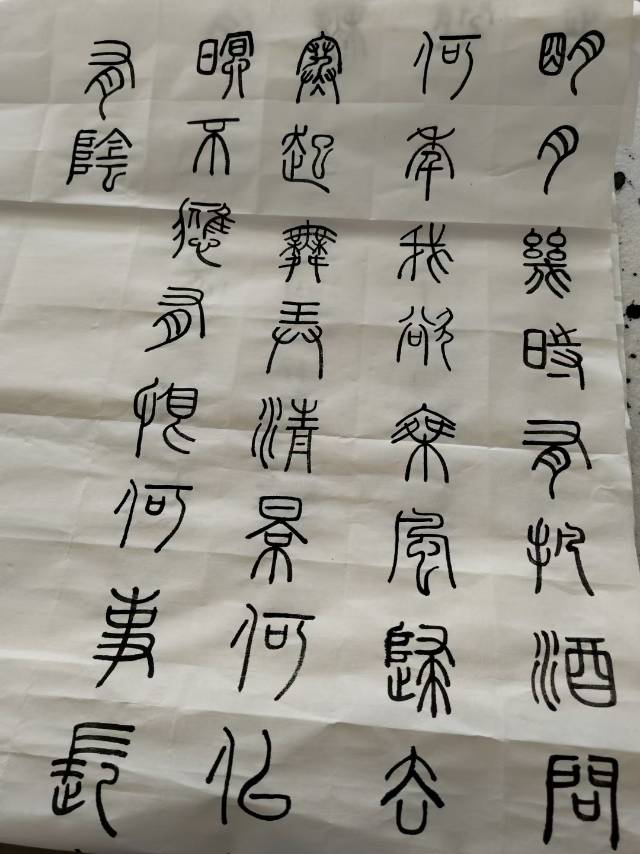 明月幾時有把酒問
何年我欲乘風歸去
寒起舞弄清景何似
眠不應有恨何事長
有陰